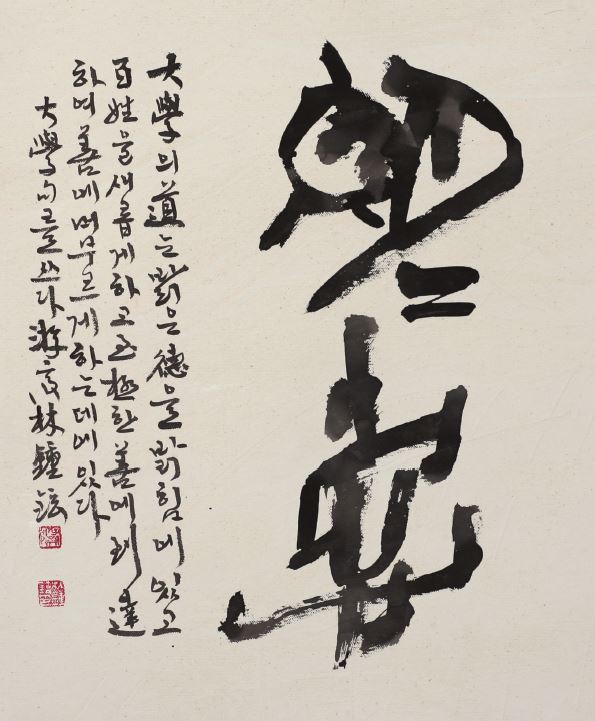 明〻悳
大學의 道는 밝은 德을 밝힘에 있고
百姓을 새롭게 하고 至極한 善에 到達
하여 善에 머무르게 하는데에 있다
大學句를 쓰다 游 林鐘鉉